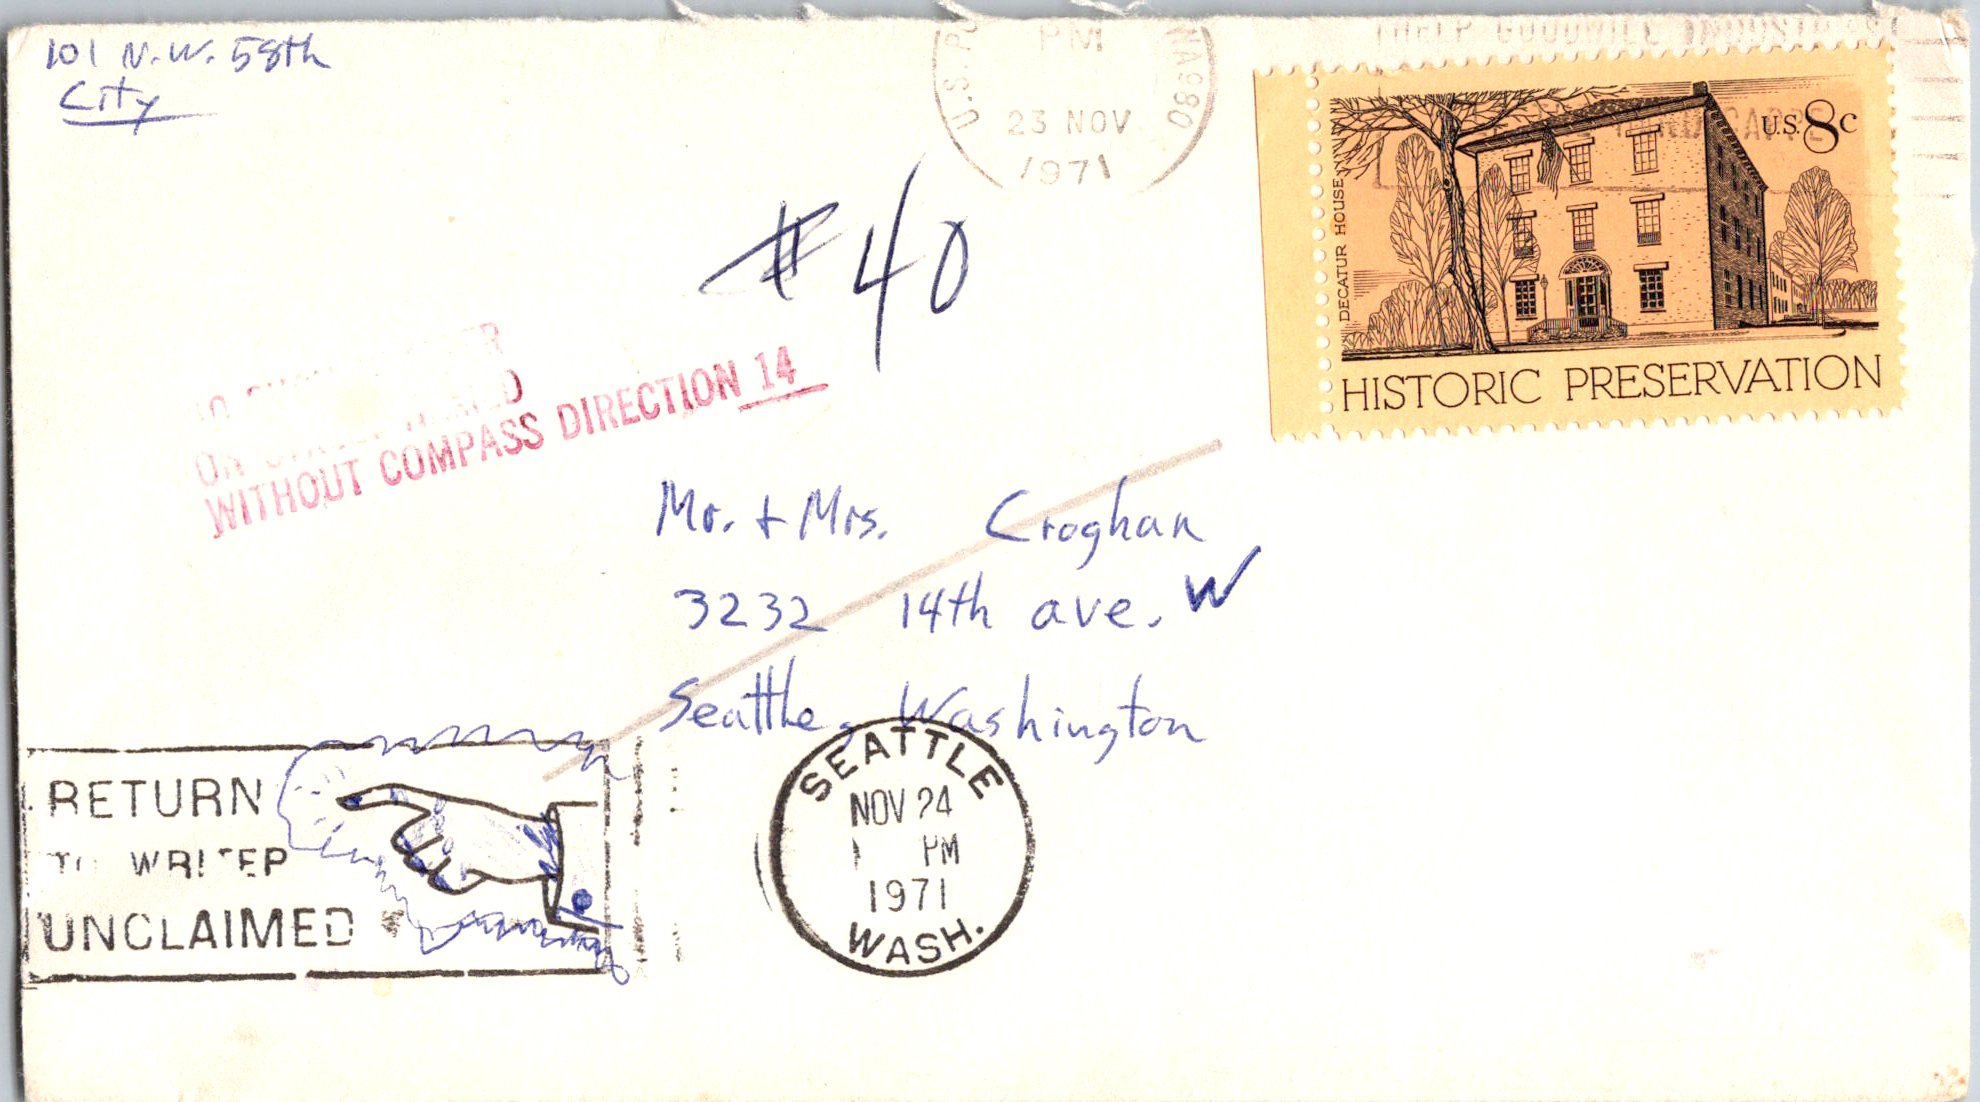 101 N.W. 58th
City
U.S. PO
PM
23 NOV
1971
WA980
HELP GOODWILL INDUSTRIES
U.S. 8c
DECATUR HOUSE
HISTORIC PRESERVATION
#40
WITHOUT COMPASS DIRECTION 14
Mr. + Mrs. Croghan
3232 14th ave. W
Seattle, Washington
RETURN
TO WRITER
UNCLAIMED
SEATTLE
NOV 24
PM
1971
WASH.